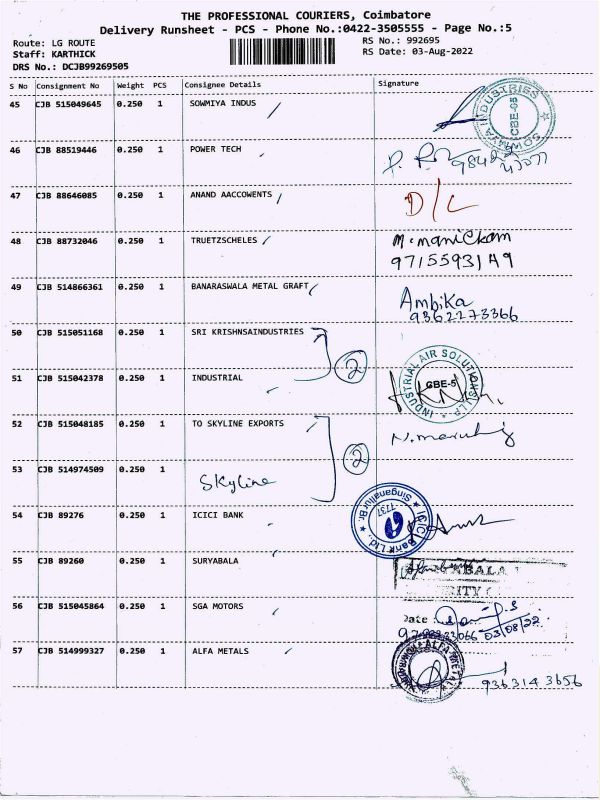 THE PROFESSIONAL COURIERS, Coimbatore
Delivery Runsheet - PCS - Phone No.:0422-3505555 - Page No.:5
Route: LG ROUTE RS No.: 992695
Staff: KARTHICK RS Date: 03-Aug-2022
DRS No.: DCJB99269505
S No Consignment No Weight PCS Consignee Details Signature
45 CJB 515049645 0.250 1 SOWMIYA INDUS
SOWMIYA INDUSTRIES CBE-05
46 CJB 88519446 0.250 1 POWER TECH
47 CJB 88646085 0.250 1 ANAND AACCOWENTS D/L
48 CJB 88732046 0.250 1 TRUETZSCHELES M.manickam
9715593149
49 CJB 514866361 0.250 1 BANARASWALA METAL GRAFT Ambika
9362273366
50 CJB 515051168 0.250 1 SRI KRISHNSAINDUSTRIES
2
51 CJB 515042378 0.250 1 INDUSTRIAL
INDUSTRIAL AIR SOLUTIONS LLP CBE-5
52 CJB 515048185 0.250 1 TO SKYLINE EXPORTS
2
53 CJB 514974509 0.250 1 Skyline
54 CJB 89276 0.250 1 ICICI BANK
ICICI Bank Ltd. Singanallur Br. 7737
55 CJB 89260 0.250 1 SURYABALA
56 CJB 515045864 0.250 1 SGA MOTORS
03/08/22
57 CJB 514999327 0.250 1 ALFA METALS
9363143656